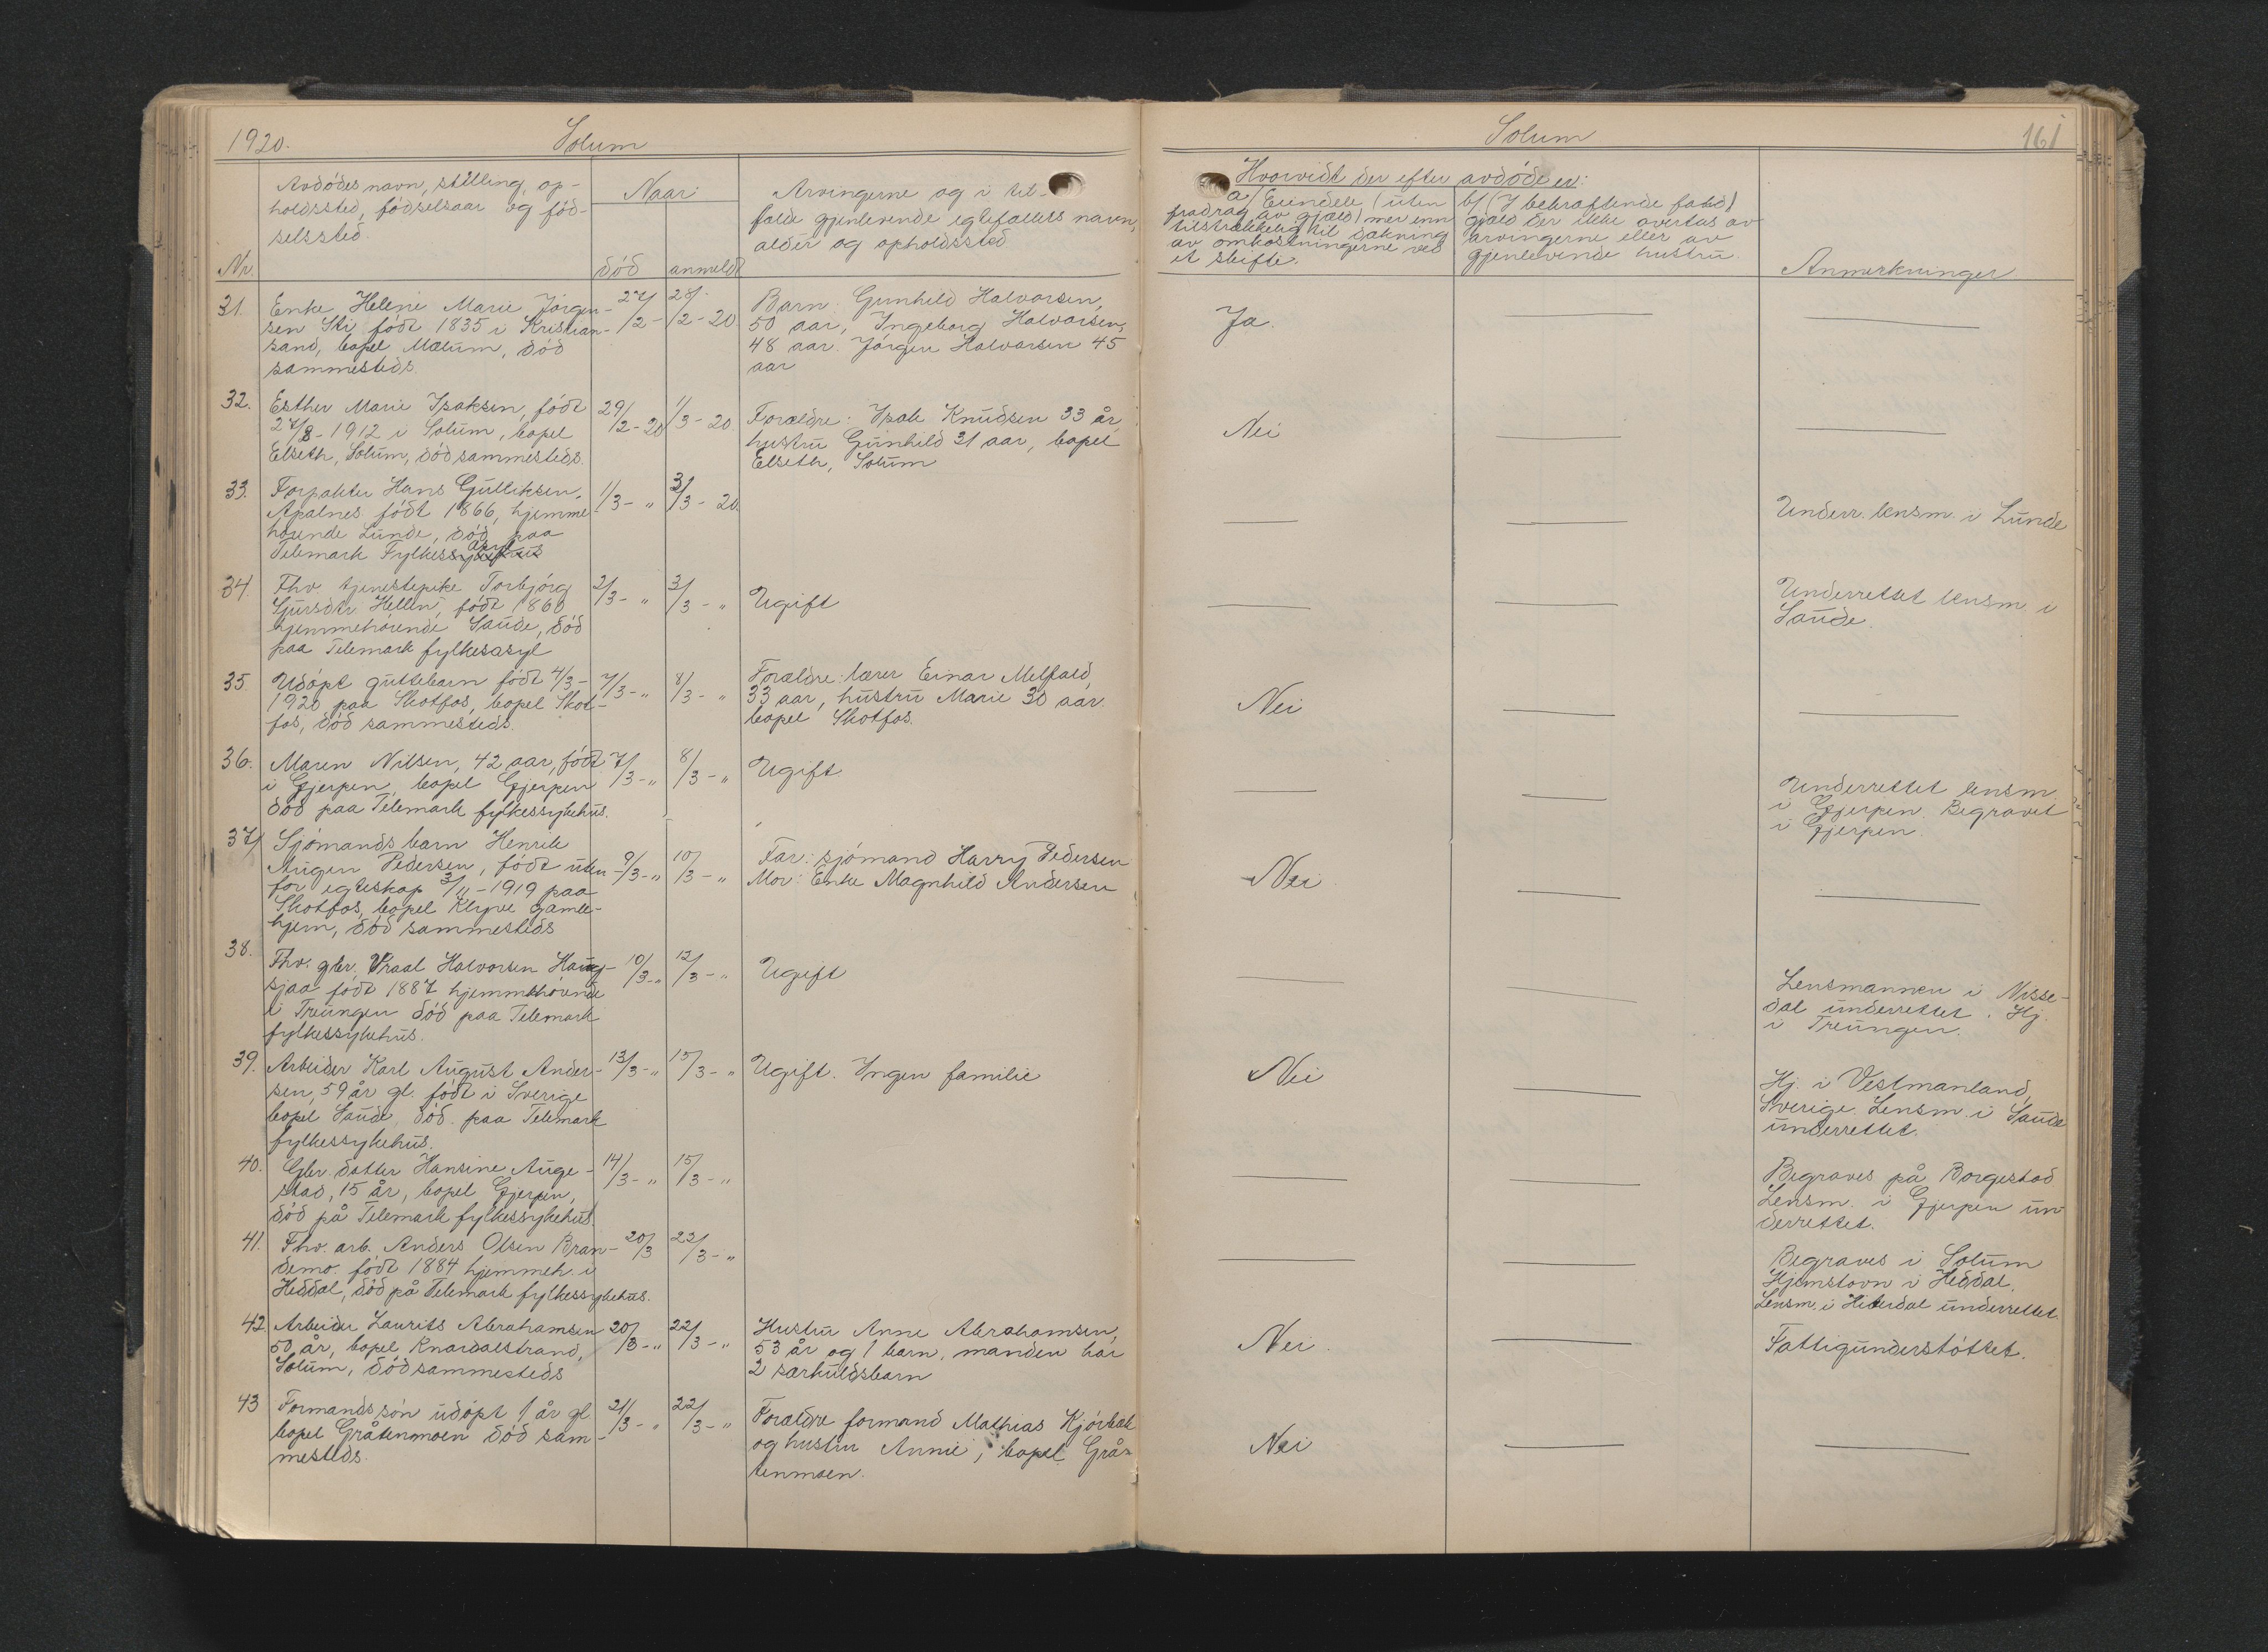 1920.
Solum
Nr.
Avdødes navn, stilling, op-
holdssted, fødselsaar og fød-
selssted.
Naar
død
anmeldt
Arvingerne og i til-
fælde gjenlevende egtefælles navn,
alder og opholdssted
31.
Enke Helene Marie Jørgen-
sen Ski født 1835 i Kristian-
sand, bopel Mælum, død
sammesteds.
27/2 -
28/2 - 20.
Barn: Gunhild Halvorsen,
50 aar, Ingeborg Halvorsen,
48 aar. Jørgen Halvorsen 45
aar
32.
Esther Marie Isaksen, født
27/8 - 1912 i Solum, bopel
Elseth, Solum, død sammesteds.
29/2 - 20
1/3 - 20.
Forældre: Isak Knudsen 33 år,
hustru Gunhild 31 aar, bopel
Elseth, Solum
33.
Forpakter Hans Gulliksen,
Apalnes født 1866, hjemme-
hørende Lunde, død paa
Telemark Fylkesasyl
1/3 - "
3/3 - 20.
34.
Fhv tjenestepike Torbjørg
Sjursdtr Hellen, født 1860
hjemmehørende Saude, død
paa Telemark fylkesasyl
2/3 - "
3/3 - "
Ugift
35.
Udøpt guttebarn født 4/3 -
1920 paa Skotfos, bopel Skot-
fos, død sammesteds.
7/3 - "
8/3 - "
Forældre: lærer Einar Melfald,
33 aar, hustru Marie 30 aar.
bopel Skotfos.
36.
Maren Nilsen, 42 aar, født
i Gjerpen, bopel Gjerpen
død paa Telemark fylkessykehus.
7/3 - "
8/3 - "
Ugift
37
Sjømands barn Henrik
Augen Pedersen, født uten-
for egteskap 3/11 - 1919 paa
Skotfos, bopel Klyve gamle-
hjem, død sammesteds
9/3 - "
10/3 - "
Far: sjømand Harry Pedersen
Mor: Enke Magnhild Andersen
38.
Fhv. gbr. Vraal Halvorsen Haug-
sjaa født 1887 hjemmehørende
i Treungen død paa Telemark
fylkessykehus.
10/3 - "
12/3 - "
Ugift
39.
Arbeider Karl August Ander-
sen, 59 år gl. født i Sverige
bopel Saude, død. paa Telemark
fylkessykehus.
13/3 - "
15/3 - "
Ugift. Ingen familie
40.
Gbr. datter Hansine Auge-
stad, 15 år, bopel Gjerpen,
død på Telemark fylkessykehus.
14/3 - "
15/3 - "
41.
Fhv. arb. Anders Olsen Bran-
demo. født 1884 hjemmeh. i
Heddal, død på Telemark fylkessykehus.
20/3
22/3 - "
42
Arbeider Laurits Abrahamsen
50 år, bopel Knardalstrand,
Solum, død sammesteds
20/3 - "
22/3 - "
Hustru Anne Abrahamsen,
53 år og 1 barn, manden har
2 særkuldsbarn
43
Formands søn udøpt 1 år gl
bopel Gråtenmoen død sam-
mesteds.
21/3 - "
22/3 - "
Forældre formand Mathias Kjørbæk
og hustru Annie, bopel Grå-
tenmoen.
Solum
161
Hvorvidt der efter avdøde er:
a/ Eiendele (uten
fradrag av gjæld) mer enn
tilstrækkelig til dækning
av omkostningerne ved
et skifte.
b/ (I bekræftende fald)
gjæld der ikke overtas av
arvingerne eller av
gjenlevende hustru.
Anmerkninger
Ja.
Nei
Underr. lensm. i Lunde
Underrettet lensm i
Saude.
Nei
Underrettet lensm
i Gjerpen. Begravet
i Gjerpen.
Nei
Lensmannen i Nisse-
dal underrettet. Hj.
i Treungen.
Nei
Hj. i Vestmanland,
Sverige. Lensm. i Saude
underrettet.
Begraves på Borgestad
Lensm. i Gjerpen un-
derrettet.
Begraves i Solum
Hjemstavn i Heddal.
Lensm. i Hiterdal underrettet.
Nei.
Fattigunderstøttet.
Nei